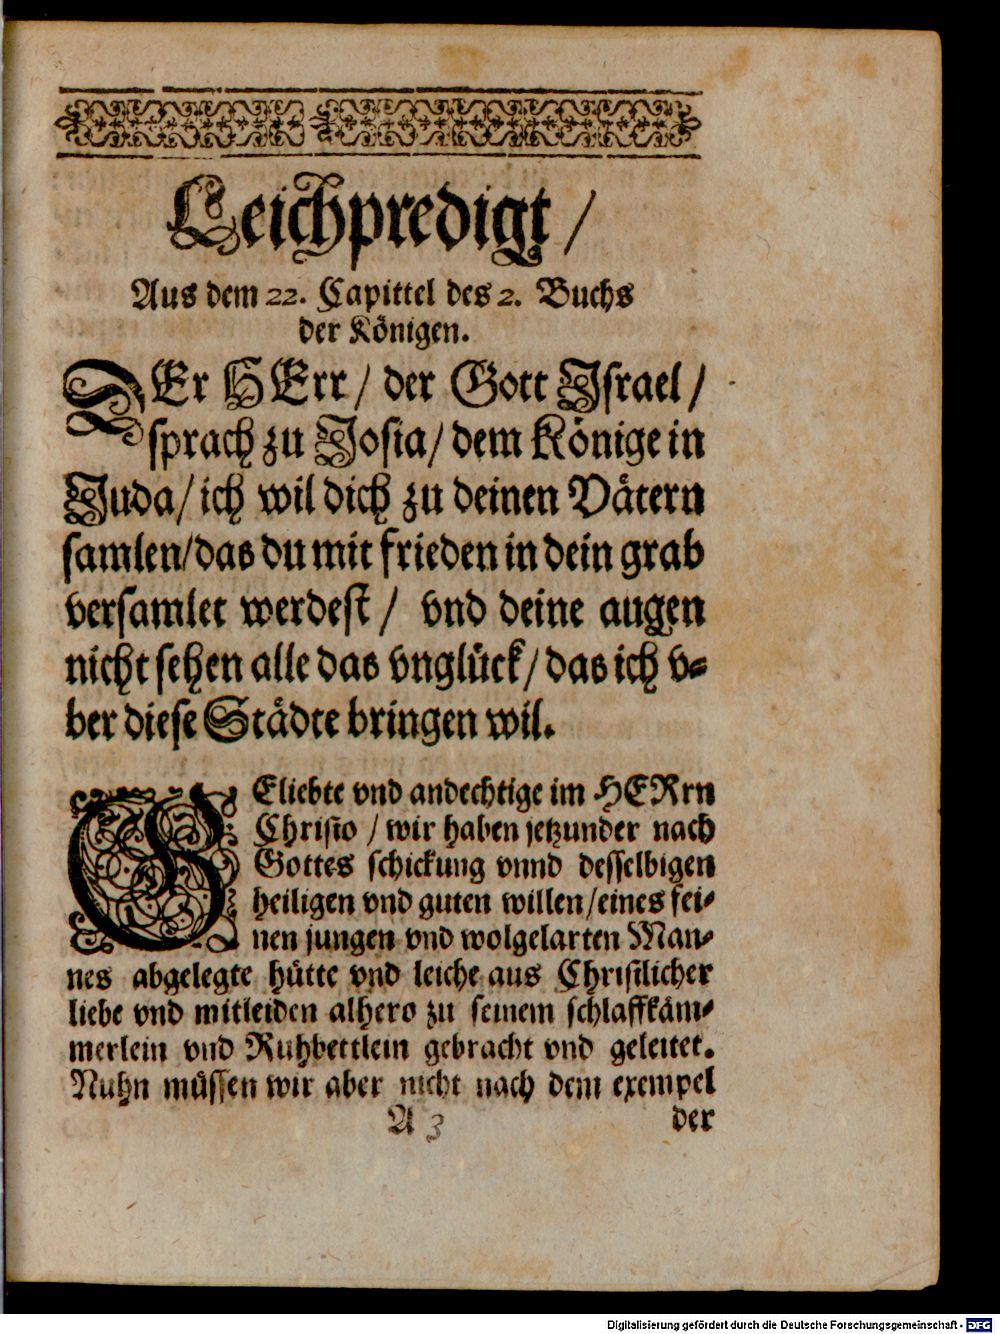 Leichpredigt /
Aus dem 22. Capittel des 2. Buchs
der Königen.
DEr HErr / der Gott Israel /
sprach zu Josia / dem Könige in
Juda / ich wil dich zu deinen Vätern
samlen / das du mit frieden in dein grab
versamlet werdest / vnd deine augen
nicht sehen alle das vnglück / das ich v-
ber diese Städte bringen wil.
GEliebte vnd andechtige im HERrn
Christo / wir haben jetzunder nach
Gottes schickung vnnd desselbigen
heiligen vnd guten willen / eines fei-
nen jungen vnd wolgelarten Man-
nes abgelegte hütte vnd leiche aus Christlicher
liebe vnd mitleiden alhero zu seinem schlaffkäm-
merlein vnd Ruhbettlein gebracht vnd geleitet.
Nuhn müssen wir aber nicht nach dem exempel
A 3 der
Digitalisierung gefördert durch die Deutsche Forschungsgemeinschaft - DFG